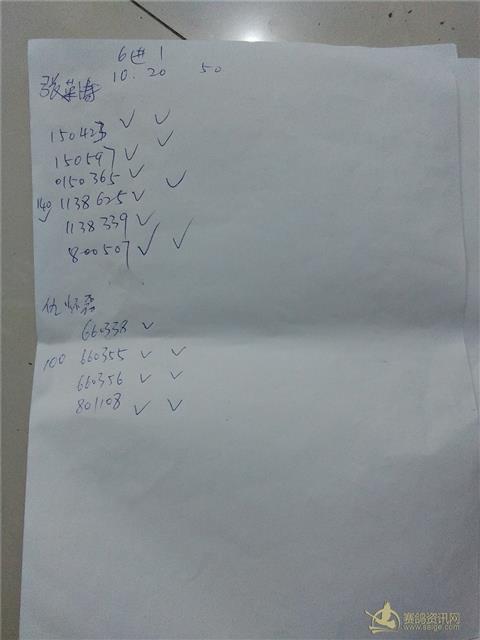 6进1
10. 20 50
150423 ✓ ✓
150597 ✓ ✓
0150365 ✓
140 1138625 ✓ ✓
1138339 ✓
800507 ✓ ✓
660338 ✓
100 660355 ✓ ✓
660356 ✓ ✓
801108 ✓ ✓
赛鸽资讯网
www.saige.com